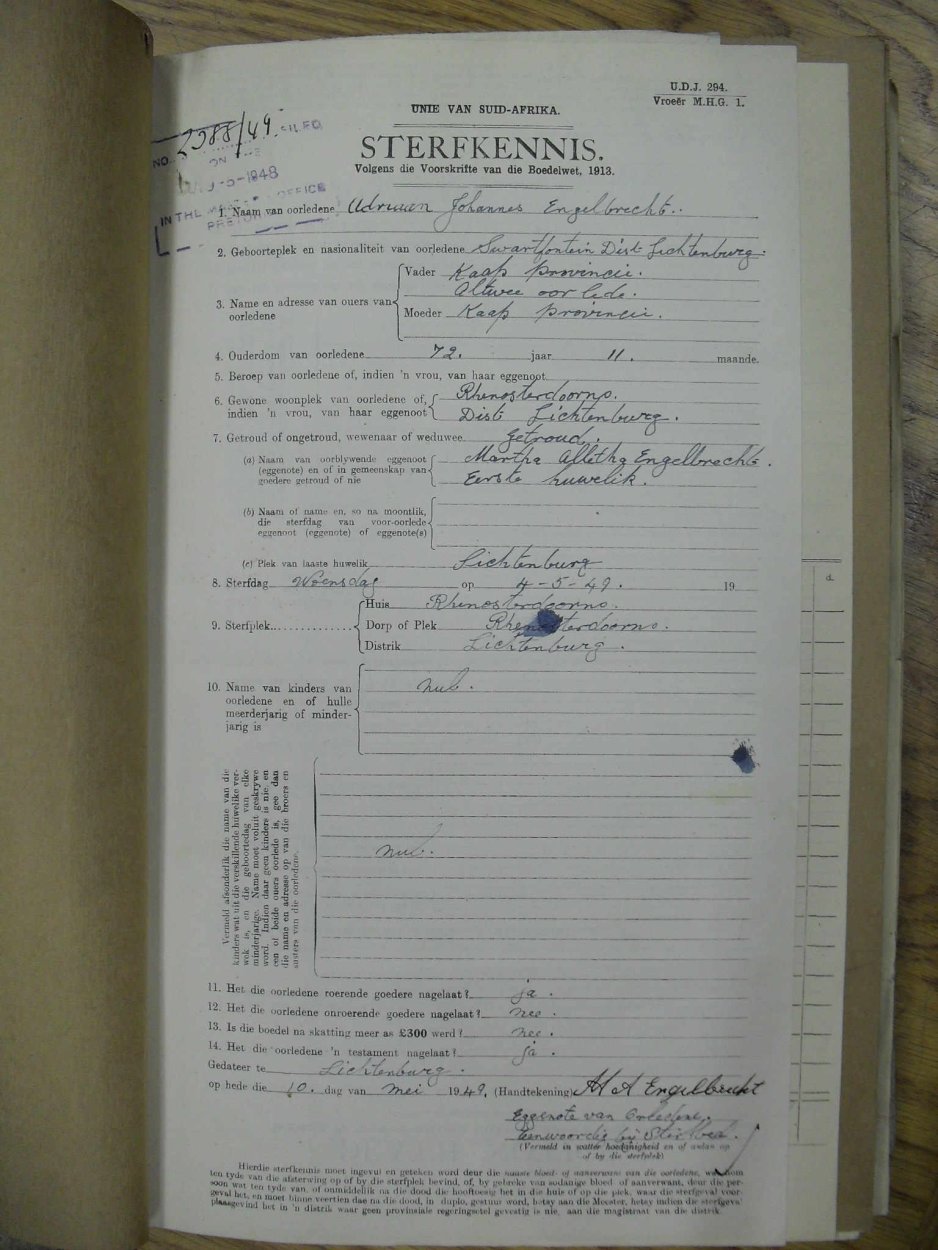 U.D.J. 294.
Vroeër M.H.G. 1.
UNIE VAN SUID-AFRIKA.
STERFKENNIS.
Volgens die Voorskrifte van die Boedelwet, 1913.
NO. 2988/49. FILED
ON THE
-5-1948
IN THE OFFICE
PRETORIA
1. Naam van oorledene Adriaan Johannes Engelbrecht.
2. Geboorteplek en nasionaliteit van oorledene Swartfontein Dist Lichtenburg.
3. Name en adresse van ouers van oorledene
Vader Kaap Provincie.
Altwee oorlede.
Moeder Kaap Provincie.
4. Ouderdom van oorledene 72. jaar 11. maande.
5. Beroep van oorledene of, indien 'n vrou, van haar eggenoot
6. Gewone woonplek van oorledene of, Rhenosterdoorns.
indien 'n vrou, van haar eggenoot Dist Lichtenburg.
7. Getroud of ongetroud, wewenaar of weduwee Getroud.
(a) Naam van oorblywende eggenoot Martha Alletha Engelbrecht.
(eggenote) en of in gemeenskap van Eerste huwelik.
goedere getroud of nie
(b) Naam of name en, so na moontlik,
die sterfdag van voor-oorlede
eggenoot (eggenote) of eggenote(s)
(c) Plek van laaste huwelik Lichtenburg
8. Sterfdag Woensdag op 4-5-49. 19
9. Sterfplek
Huis Rhenosterdoorns.
Dorp of Plek Rhenosterdoorns.
Distrik Lichtenburg.
10. Name van kinders van nul.
oorledene en of hulle
meerderjarig of minder-
jarig is
Vermeld afsonderlik die name van die
kinders wat uit die verskillende huwelike ver-
wek is, en die geboortedag van elke
minderjarige. Name moet voluit geskrywe
word. Indien daar geen kinders is nie, en
een of beide ouers oorlede is, gee dan
die name en adresse op van die broers en
susters van die oorledene.
nul.
11. Het die oorledene roerende goedere nagelaat? ja.
12. Het die oorledene onroerende goedere nagelaat? nee.
13. Is die boedel na skatting meer as £300 werd? nee.
14. Het die oorledene 'n testament nagelaat? ja.
Gedateer te Lichtenburg.
op hede die 10. dag van mei 1949, (Handtekening) M A Engelbrecht
Eggenote van Orledene.
Teenwoordig bij Sterfbed.
(Vermeld in watter hoedanigheid en of aldan op
of by die sterfplek)
Hierdie sterfkennis moet ingevul en geteken word deur die naaste bloed- of aanverwant van die oorledene, watom
ten tyde van die afsterwing op of by die sterfplek bevind, of, by gebreke van sodanige bloed- of aanverwant, deur die per-
soon wat ten tyde van, of onmiddellik na die dood die hooftoesig het in die huis of op die plek, waar die sterfgeval voor-
geval het, en moet binne veertien dae na die dood, in duplo, gestuur word, hetsy aan die Meester, hetsy indien die sterfgeval
plaasgevind het in 'n distrik waar geen provinsiale regeringsetel gevestig is nie, aan die magistraat van die distrik.
d.